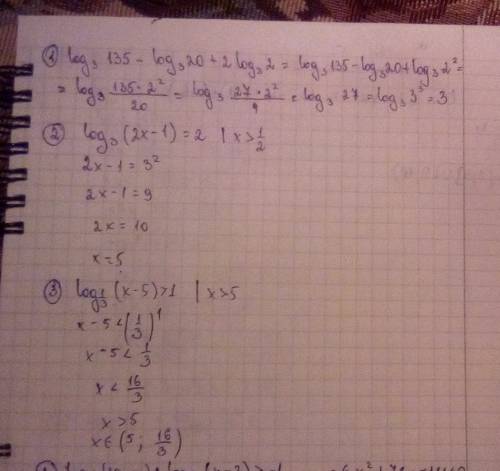 ① log₃ 135 - log₃ 20 + 2 log₃ 2 = log₃ 135 - log₃ 20 + log₃ 2² =
= log₃ (135 · 2²)/20 = log₃ (27 · 2²)/4 = log₃ 27 = log₃ 3³ = 3
② log₃ (2x-1) = 2 | x > 1/2
2x-1 = 3²
2x-1 = 9
2x = 10
x = 5
③ log_{1/3} (x-5) > 1 | x > 5
x - 5 < (1/3)¹
x - 5 < 1/3
x < 16/3
x > 5
x ∈ (5; 16/3)